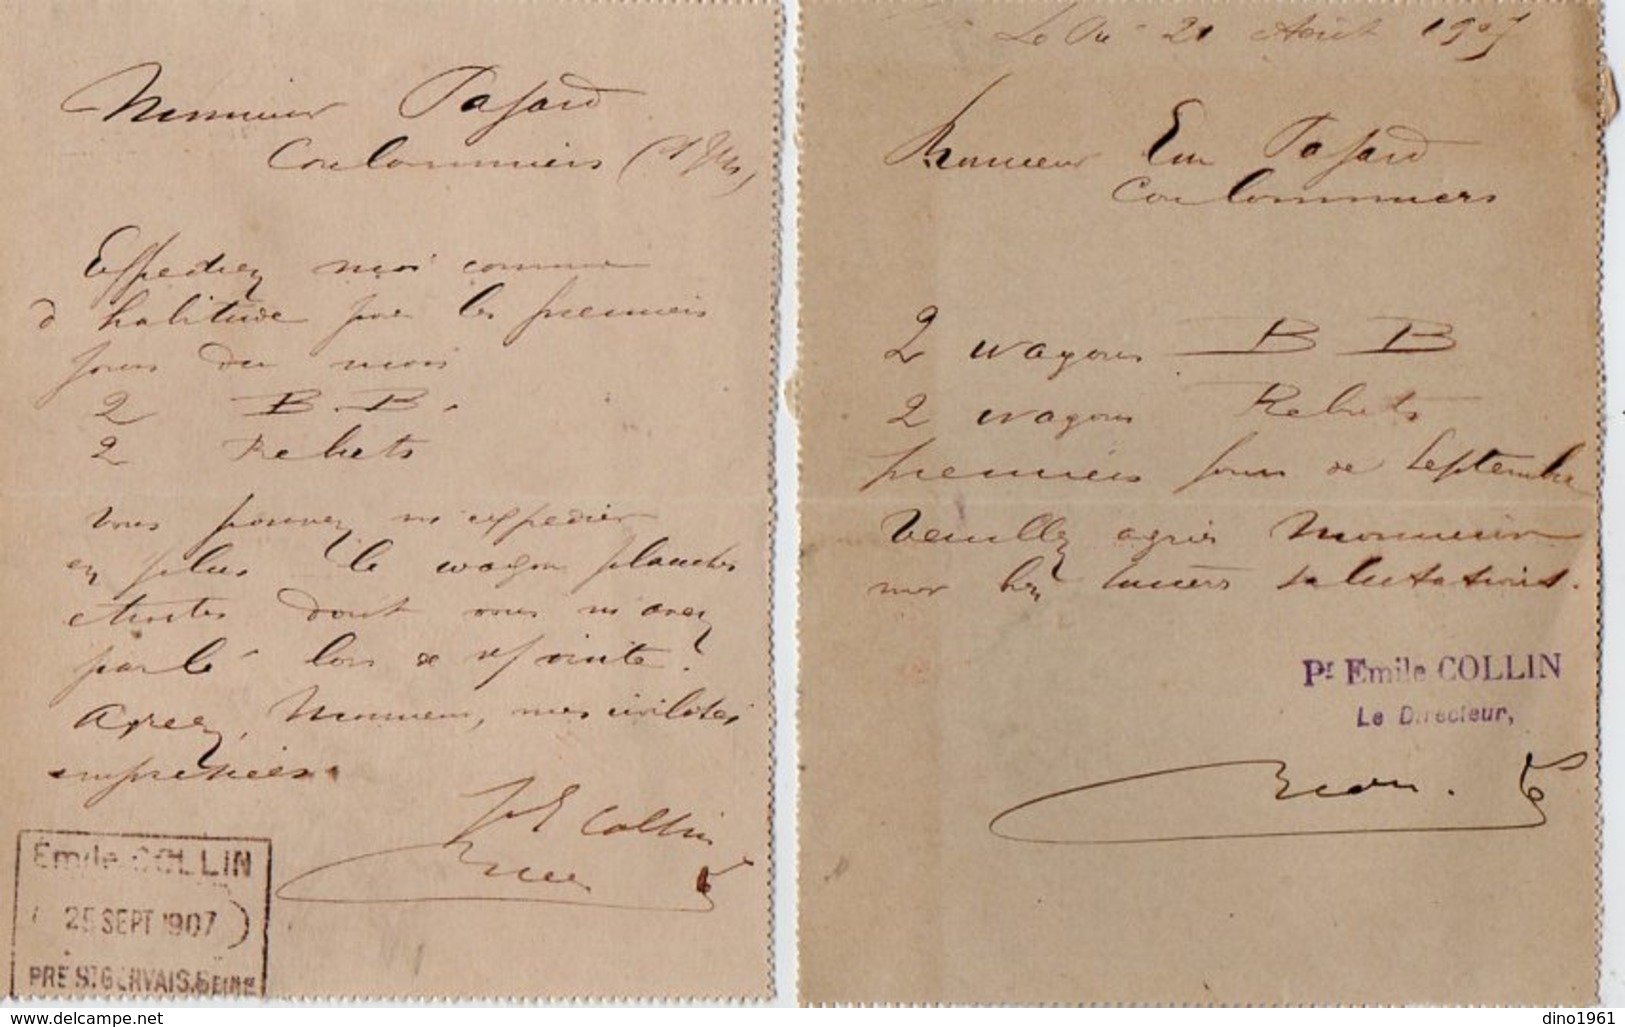 Monsieur Pajard
Coulommiers
Expediez moi comme
d habitude pour les premiers
jours du mois
2 B.B.
2 Rebuts
Vous pouvez m'expedier
en plus le wagon planches
etroites dont vous m'avez
parlé lors de visite?
Agreez, Monsieur, mes civilités
empressées
Pr E Collin
Émile COLLIN
25 SEPT 1907
PRÉ ST GERVAIS. SEINE
Le Pré 21 Août 1907
Monsieur Em Pajard
Coulommiers
2 wagons B B
2 wagons Rebuts
premiers jours de Septembre
Veuillez agréer Monsieur
mes bien sincères salutations.
Pr Emile COLLIN
Le Directeur,
delcampe.net
dino1961